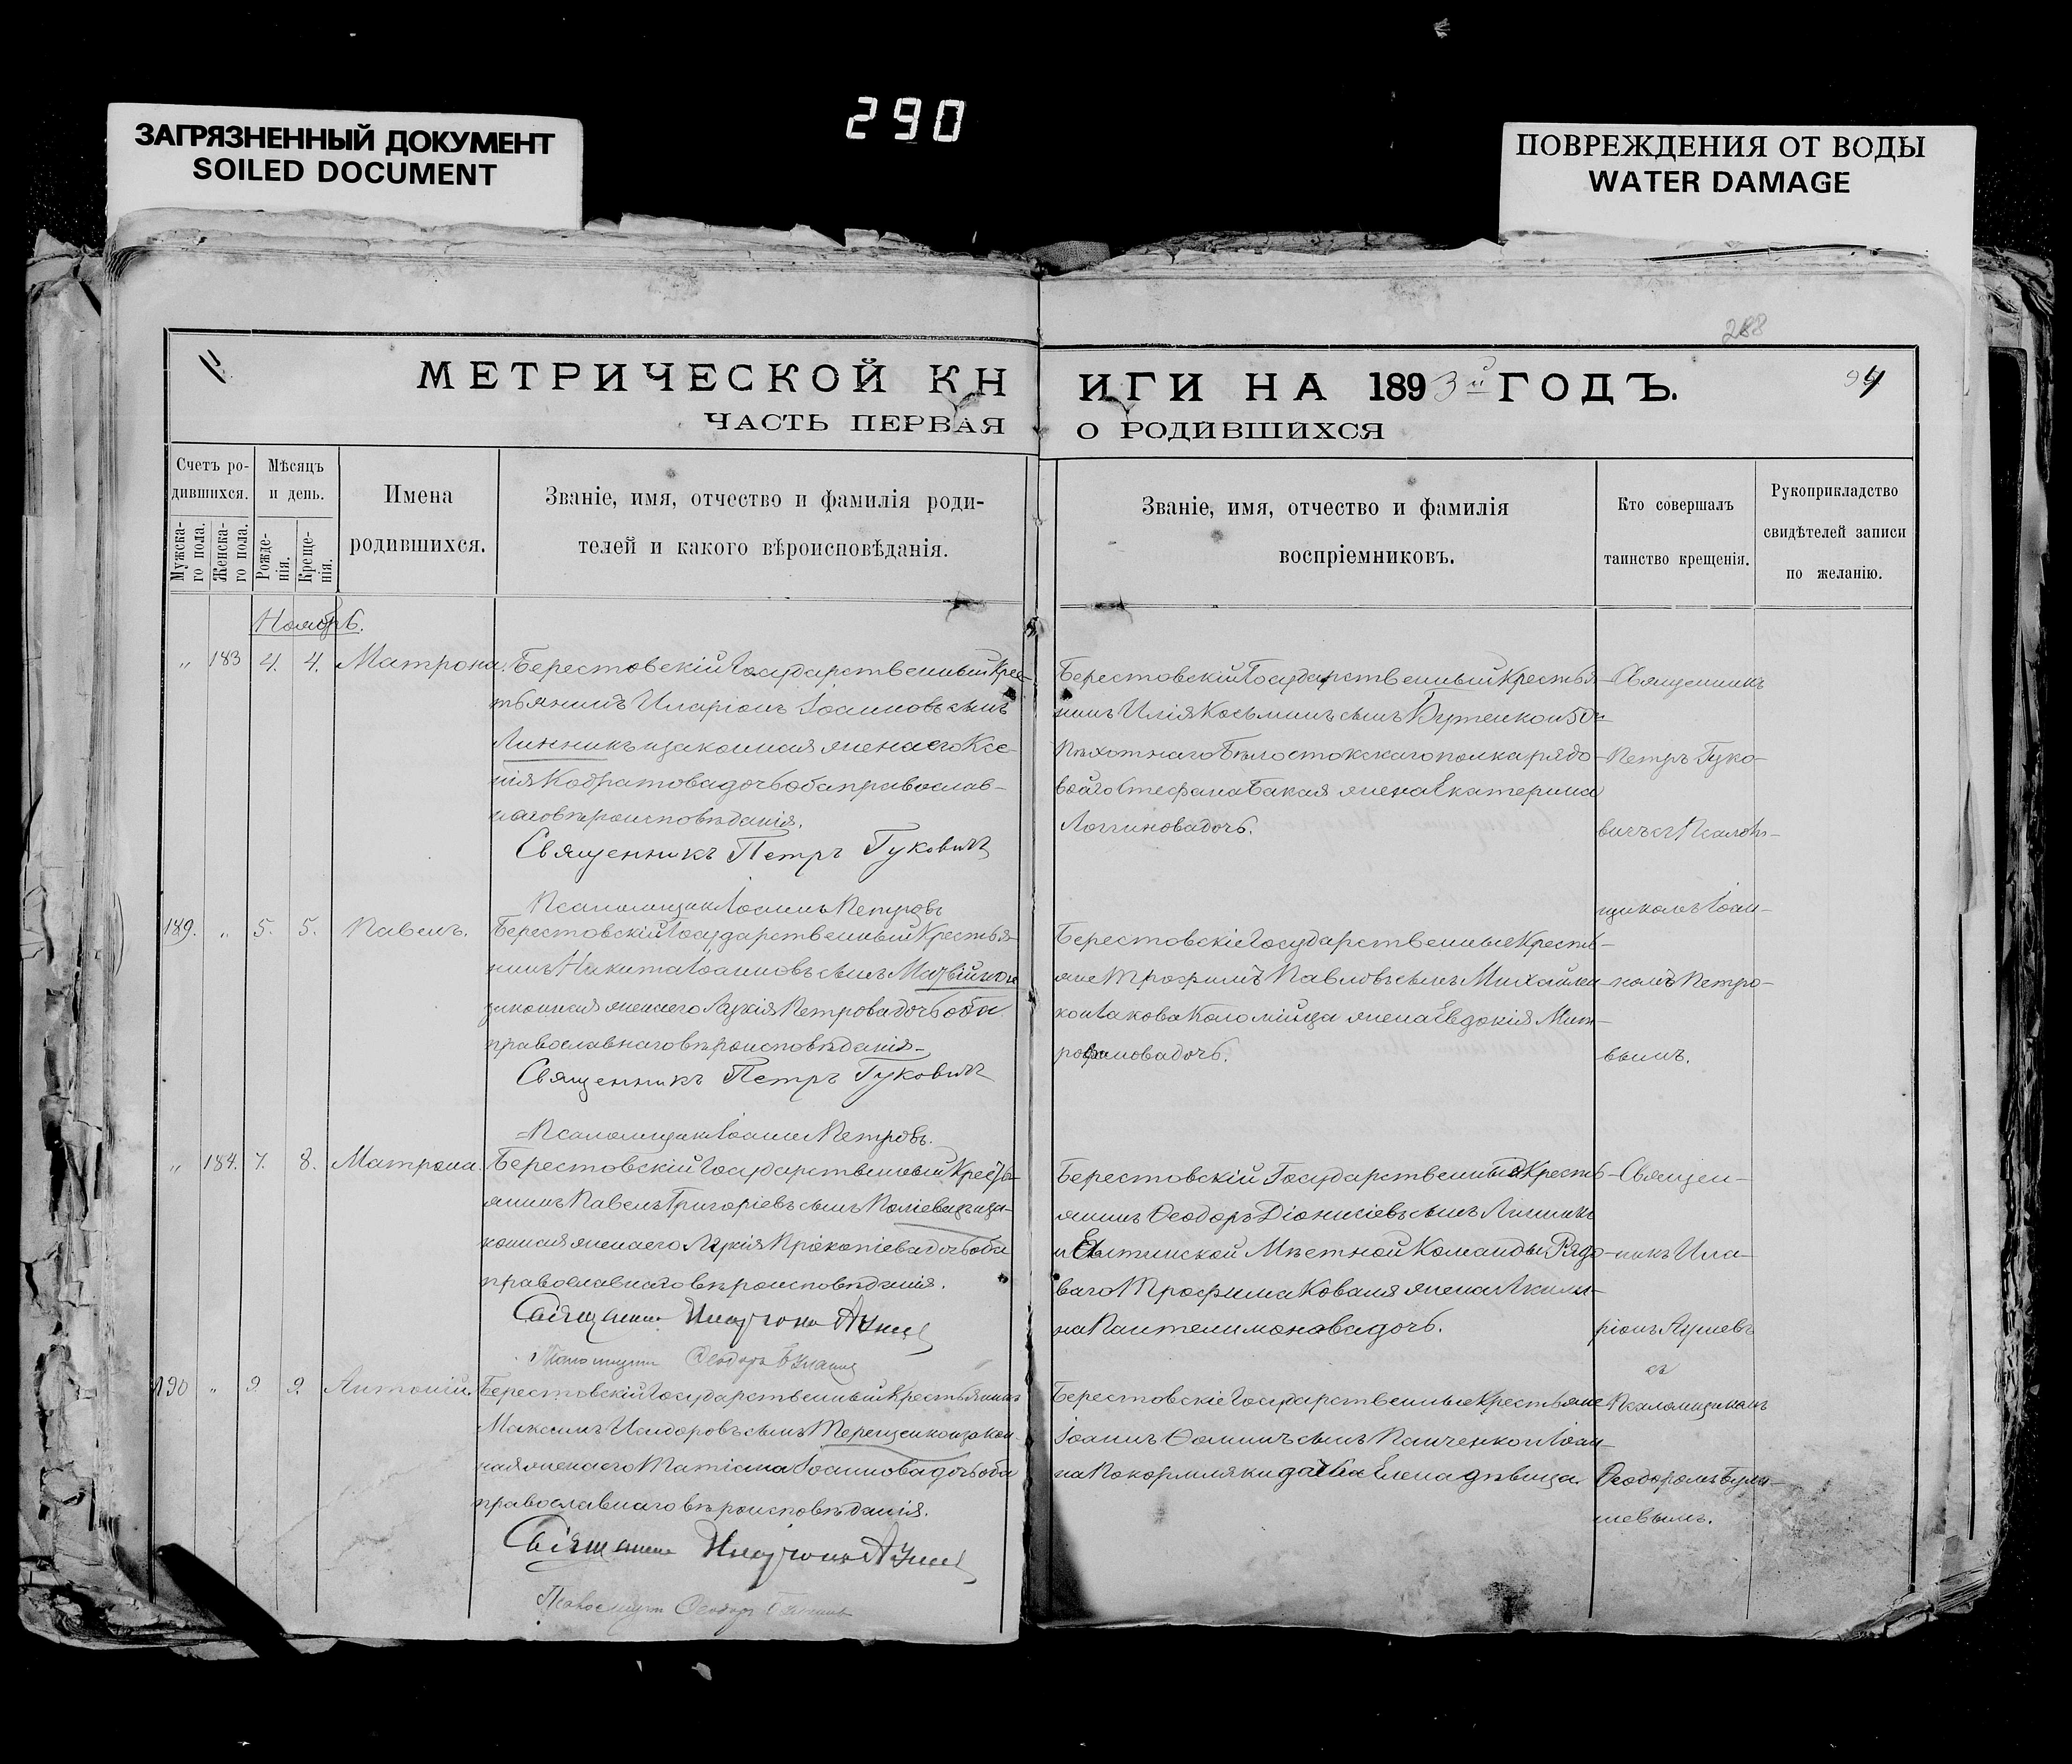 290
ЗАГРЯЗНЕННЫЙ ДОКУМЕНТ
SOILED DOCUMENT
ПОВРЕЖДЕНИЯ ОТ ВОДЫ
WATER DAMAGE
288
94
МЕТРИЧЕСКОЙ КН
ИГИ НА 1893й ГОДЪ.
ЧАСТЬ ПЕРВАЯ
О РОДИВШИХСЯ
Счетъ ро-
дившихся.
Мужска-
го пола.
Женска-
го пола.
Мѣсяцъ
и день.
Рожде-
нія.
Креще-
нія.
Имена
родившихся.
Званіе, имя, отчество и фамилія роди-
телей и какого вѣроисповѣданія.
Званіе, имя, отчество и фамилія
воспріемниковъ.
Кто совершалъ
таинство крещенія.
Рукоприкладство
свидѣтелей записи
по желанію.
Ноябрь.
" 183 4. 4. Матрона.
Берестовскій Государственный Крес-
тьянинъ Иларіонъ Іоанновъ сынъ
Линникъ и законная жена его Ксе-
нія Кодратова дочь оба православ-
наго вѣроисповѣданія.
Священникъ Петръ Гуковичъ
Псаломщикъ Іоаннъ Петровъ
Берестовскій Государственный Крестья-
нинъ Илія Косьминъ сынъ Вутенко и 50го
Пѣхотнаго Бѣлостокскаго полка рядо-
ваго Стефана Бакая жена Екатерина
Логгинова дочь.
Священникъ
Петръ Гуко-
вичъ съ Псалом-
щикомъ Іоан-
номъ Петро-
вымъ.
189. " 5. 5. Павелъ.
Берестовскій Государственный Крестья-
нинъ Никита Іоанновъ сынъ Матвійко и
законная жена его Лукія Петрова дочь оба
православнаго вѣроисповѣданія.
Священникъ Петръ Гуковичъ
Псаломщикъ Іоаннъ Петровъ.
Берестовскіе Государственные Крестья-
не Трофимъ Павловъ сынъ Михайлен-
ко и Іакова Коломійца жена Евдокія Мит-
рофанова дочь.
" 184. 7. 8. Матрона.
Берестовскій Государственный Кресть-
янинъ Павелъ Григоріевъ сынъ Поліевецъ и за-
конная жена его Лукія Прокопіева дочь оба
православнаго вѣроисповѣданія.
Священникъ Иларіонъ
Псаломщикъ Ѳеодоръ
Берестовскій Государственный Кресть-
янинъ Ѳеодоръ Діонисіевъ сынъ Линникъ
и Ялтинской Мѣстной Команды Рядо-
ваго Трофима Коваля жена Акили-
на Пантелимонова дочь.
Священ-
никъ Ила-
ріонъ
съ
Псаломщикомъ
Ѳеодоромъ
190 " 9. 9. Антоній.
Берестовскій Государственный Крестьянинъ
Максимъ Исидоровъ сынъ Терещенко и закон-
ная жена его Татіана Іоаннова дочь оба
православнаго вѣроисповѣданія.
Священникъ Иларіонъ
Псаломщикъ Ѳеодоръ
Берестовскіе Государственные Крестьяне
Іоаннъ Ѳоминъ сынъ Панченко и Іоан-
на Покормляки дочь Елена дѣвица.